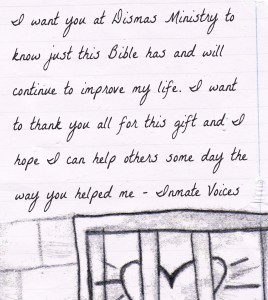 I want you at Dismas Ministry to
know just this Bible has and will
continue to improve my life. I want
to thank you all for this gift and I
hope I can help others some day the
way you helped me - Inmate Voices